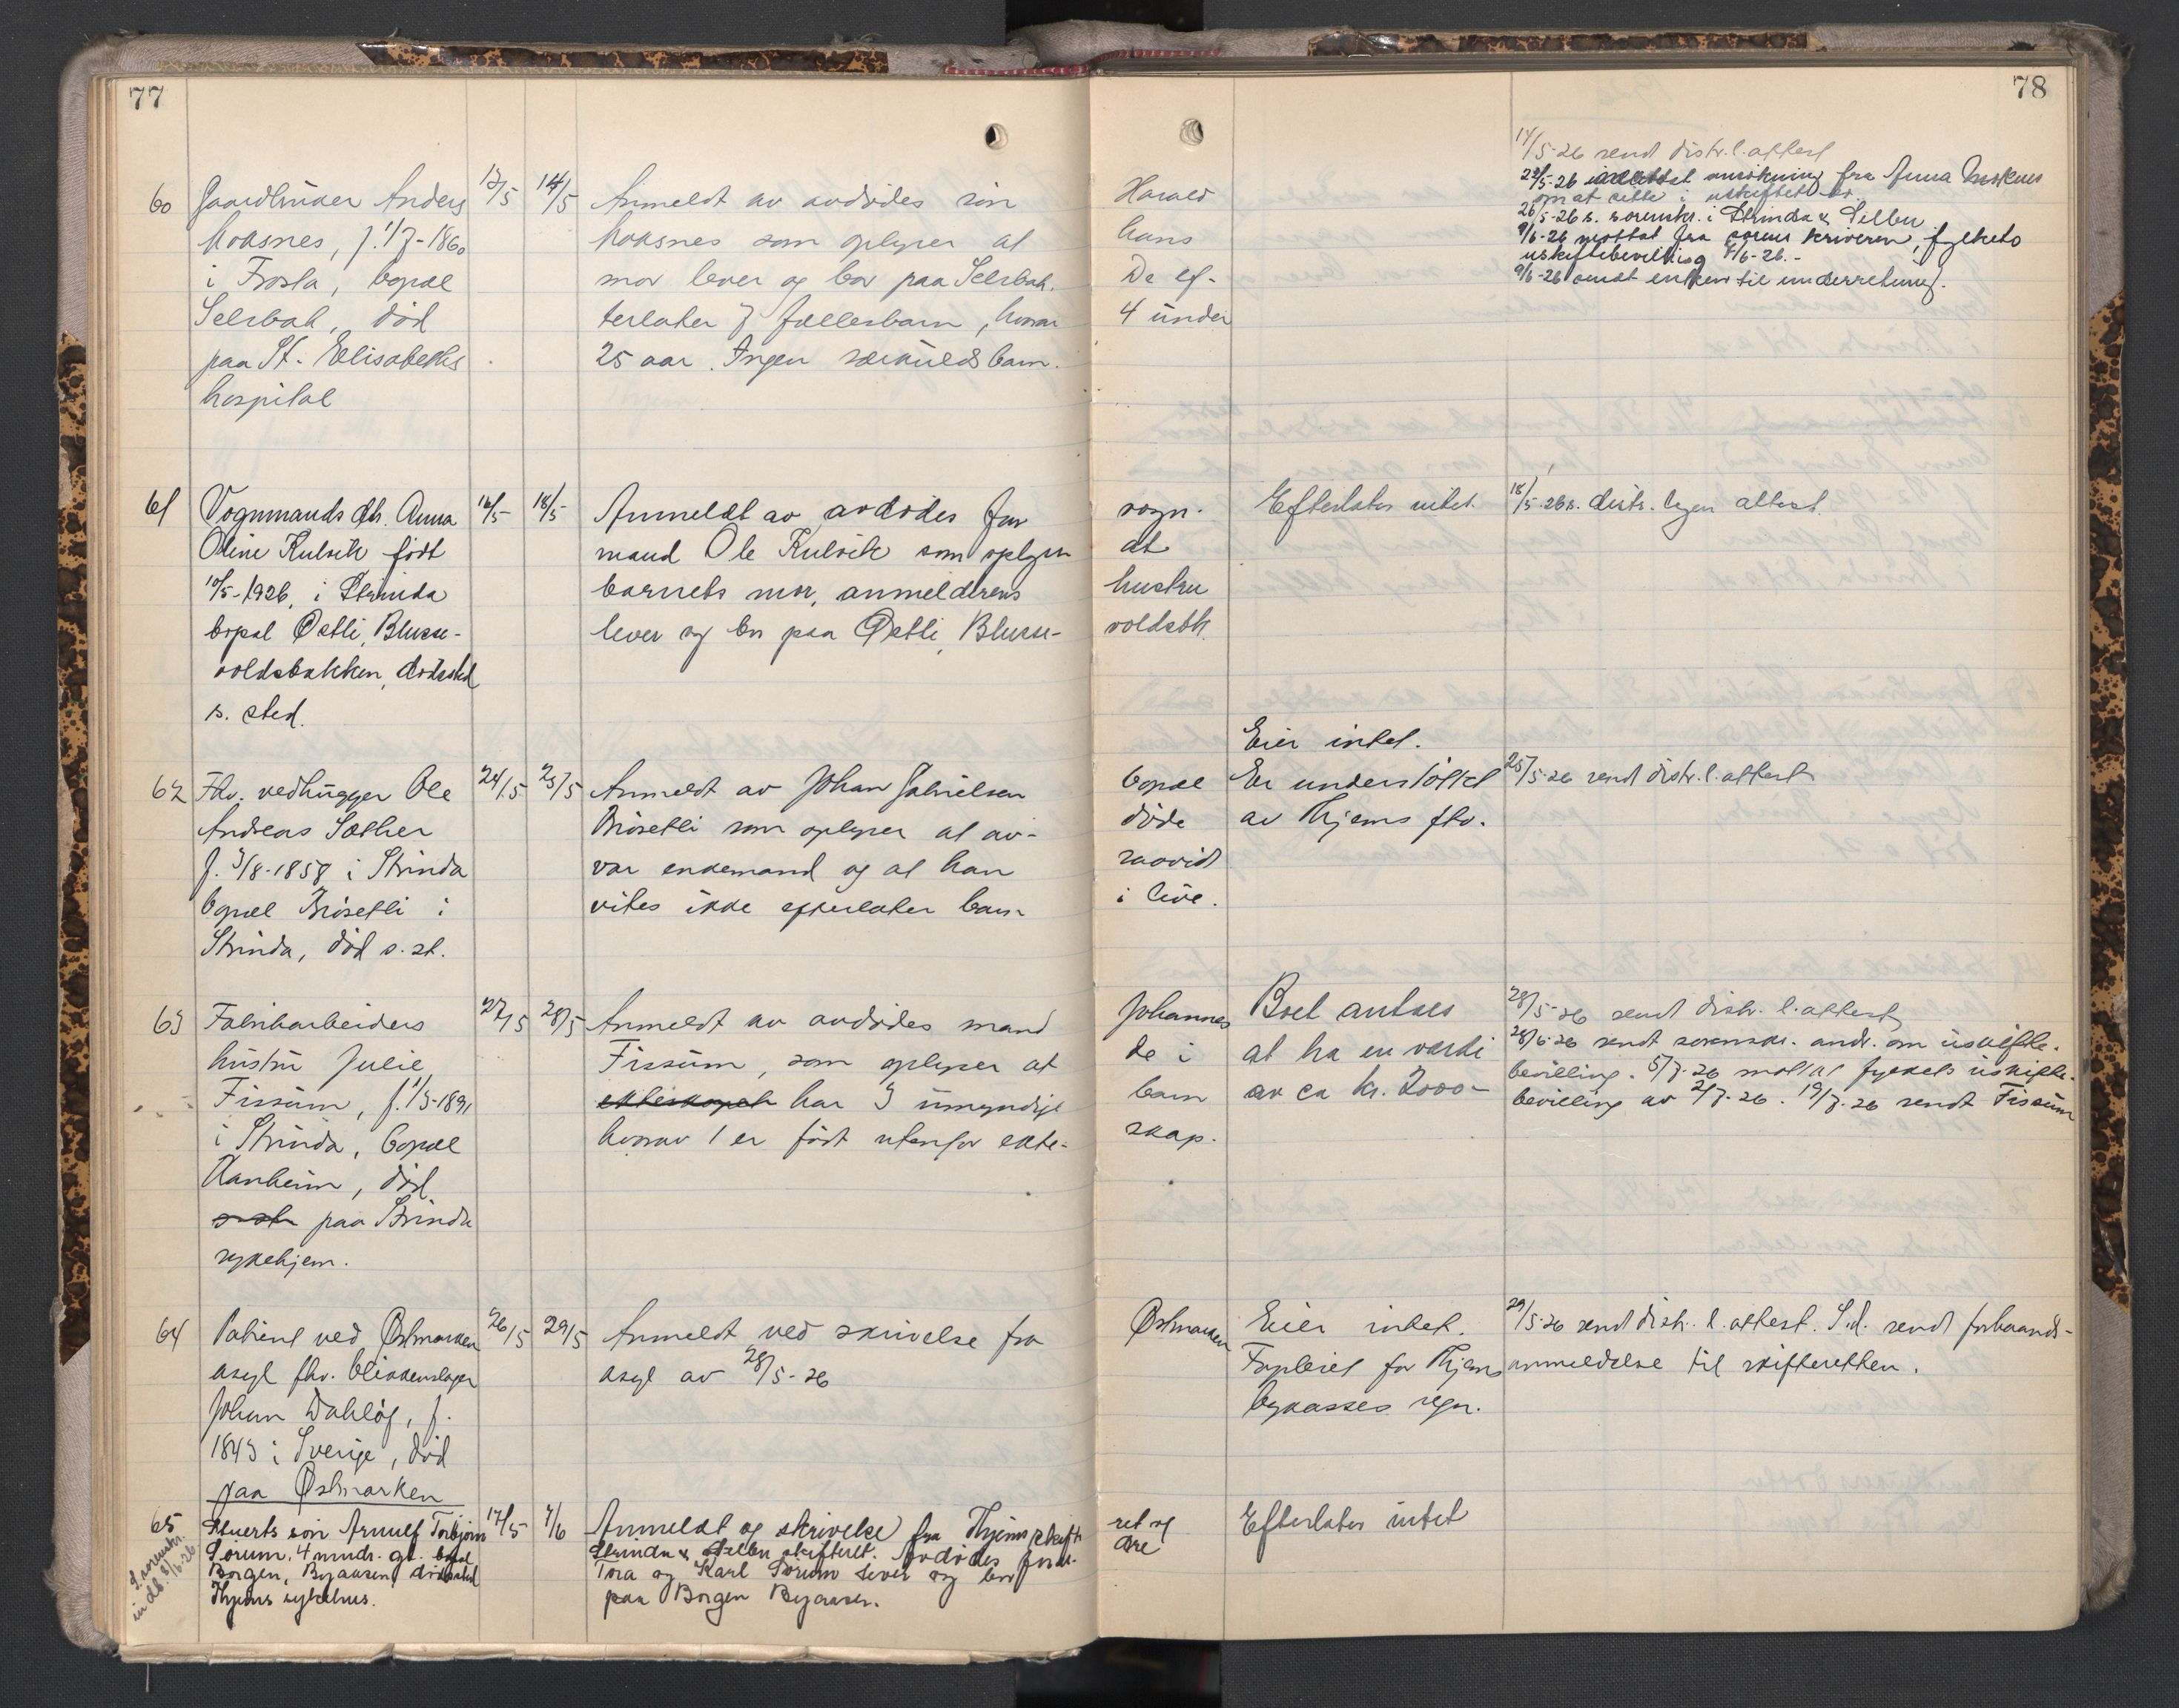 77
78
60 Gaardbruker Anders 12/5 14/5 Anmeldt av avdødes søn Harald
Moksnes, f. 1/7-1860 Moksnes som oplyser at hans
i Frosta, bopæl mor lever og bor paa Selsbak. De ef-
Selsbak, død terlater 7 fællesbarn, hvorav 4 under
paa St. Elisabeths 25 aar. Ingen særkuldsbarn.
hospital
14/5-26 sendt distr.l. attest
22/5-26 mottat ansøkning fra Anna Moksnes
om at sitte i uskiftet bo.
26/5-26 s. sorenskr. i Strinda & Selbu
9/6-26 mottat fra sorenskriveren, fylkets
uskiftebevilling 4/6-26.-
9/6-26 sendt enken til underretning.
61 Vognmands dtr. Anna 16/5 18/5 Anmeldt av avdødes far vogn- Efterlater intet. 18/5-26 s. distr. legen attest.
Oline Kulvik født mand Ole Kulvik som oplyser at
10/5-1926, i Strinda barnets mor, anmelderens hustru
bopæl Østli, Blusse- lever og bor paa Østli, Blusse- voldsbk.
voldsbakken, dødssted
s. sted.
Eier intet.
62 Fhv. vedhugger Ole 24/5 25/5 Anmeldt av Johan Gabrielsen bopæl Er understøttet 25/5-26 sendt distr.l. attest
Andreas Sæther Risetli som oplyser at av- døde av Thjems ftv.
f. 3/8-1858 i Strinda var enkemand og at han saavidt
bopæl Risetli i vites ikke efterlater barn i live.
Strinda, død s. st.
63 Fabrikarbeiders 27/5 28/5 Anmeldt av avdødes mand Johannes Boet antaes 28/5-26 sendt distr. l. attest
hustru Julie Fissum, som oplyser at de i at ha en verdi 28/6-26 sendt sorenskr. andr. om uskifte-
Fissum, f. 1/3-1891 ekteskapet har 3 umyndige barn av ca kr. 2000- bevilling. 5/7-26 mottat fylkets uskifte-
i Strinda, bopæl hvorav 1 er født utenfor ekte- skap. bevilling av 2/7-26. 19/7-26 sendt Fissum
Aanheim, død
s. st. paa Strinda
sykehjem.
64 Patient ved Østmarken 26/5 29/5 Anmeldt ved skrivelse fra Østmarken Eier intet. 29/5-26 sendt distr. l. attest. S.d. sendt forhaands-
asyl fhv. blikkenslager asyl av 28/5-26 Forpleiet for Thjems anmeldelse til skifteretten.
Johan Dahløf, f. bykasses regn.
1843 i Sverige, død
paa Østmarken
65 Stuerts søn Arnulf Torbjørn 17/5 7/6 Anmeldt og skrivelse fra Thjems skifte- ret og Efterlater intet
Sørum, 4 mndr. gl. bopæl Strinda & Selbu skifteret. Avdødes foræl- dre
Borgen, Byaasen, dødssted Tora og Karl Sørum lever og bor
Thjems sykehus. paa Borgen Byaasen.
S. sorenskr.
indb. 8/6-26